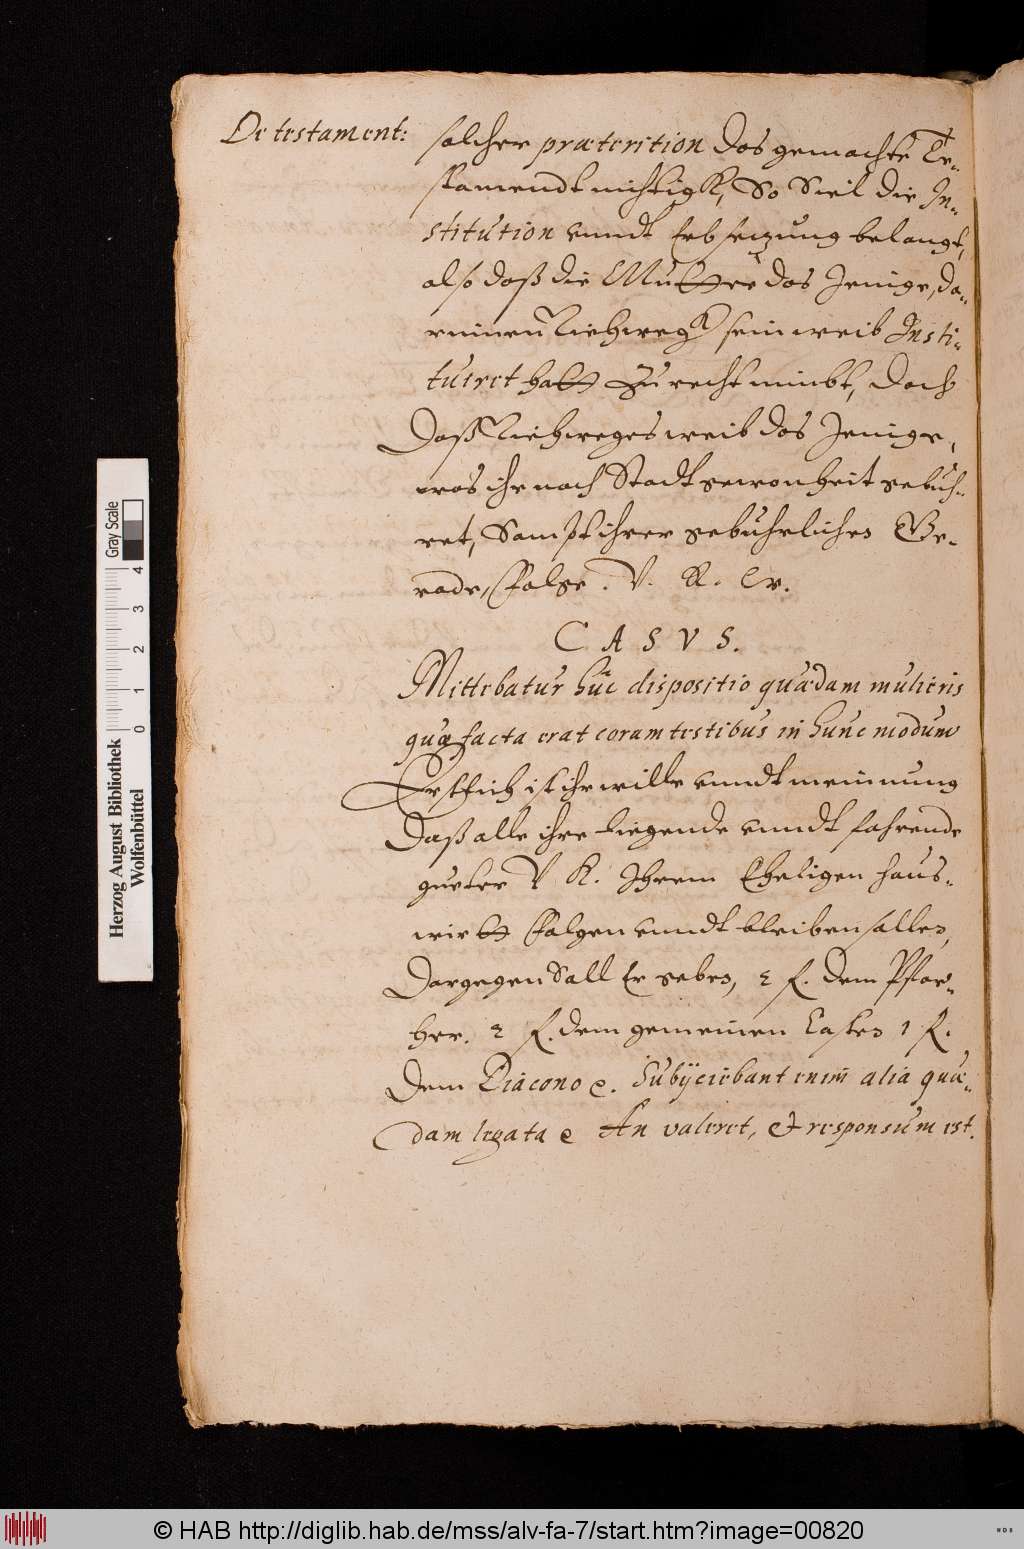 De testament:
solcher præterition das gemachte Te-
stamendt nichtigk, So Viel die In-
stitution vnndt Erbsetzung belangt,
also daß die Mutter das Jenige, da-
rinnen Ziehwegk sein weib Insti-
tuiret hatt Zu recht nimbt, doch
Daß Ziehweges weib das Jenige,
was ihr nach Stadt gewonheit gebüh-
ret, Sampt ihrer gebührlichen Ge-
rade, folge. V. R. W.
CASVS.
Mittebatur huc dispositio quædam mulieris
quæ facta erat coram testibus in hunc modum
Erstlich ist ihr wille vnndt meinnung
Daß alle ihre liegende vnndt fahrende
gueter V R. Ihrem Eheligen haus-
wirtt folgen vnndt bleiben sollen,
Dargegen Soll Er geben, 2 f. dem Pfar-
her. 2 f. dem gemeinen Casten 1 f.
dem Diacono e. Subijciebant enim alia quæ-
dam legata e An valeret, & responsum est.
Gray Scale
0 1 2 3 4
Herzog August Bibliothek
Wolfenbüttel
© HAB http://diglib.hab.de/mss/alv-fa-7/start.htm?image=00820